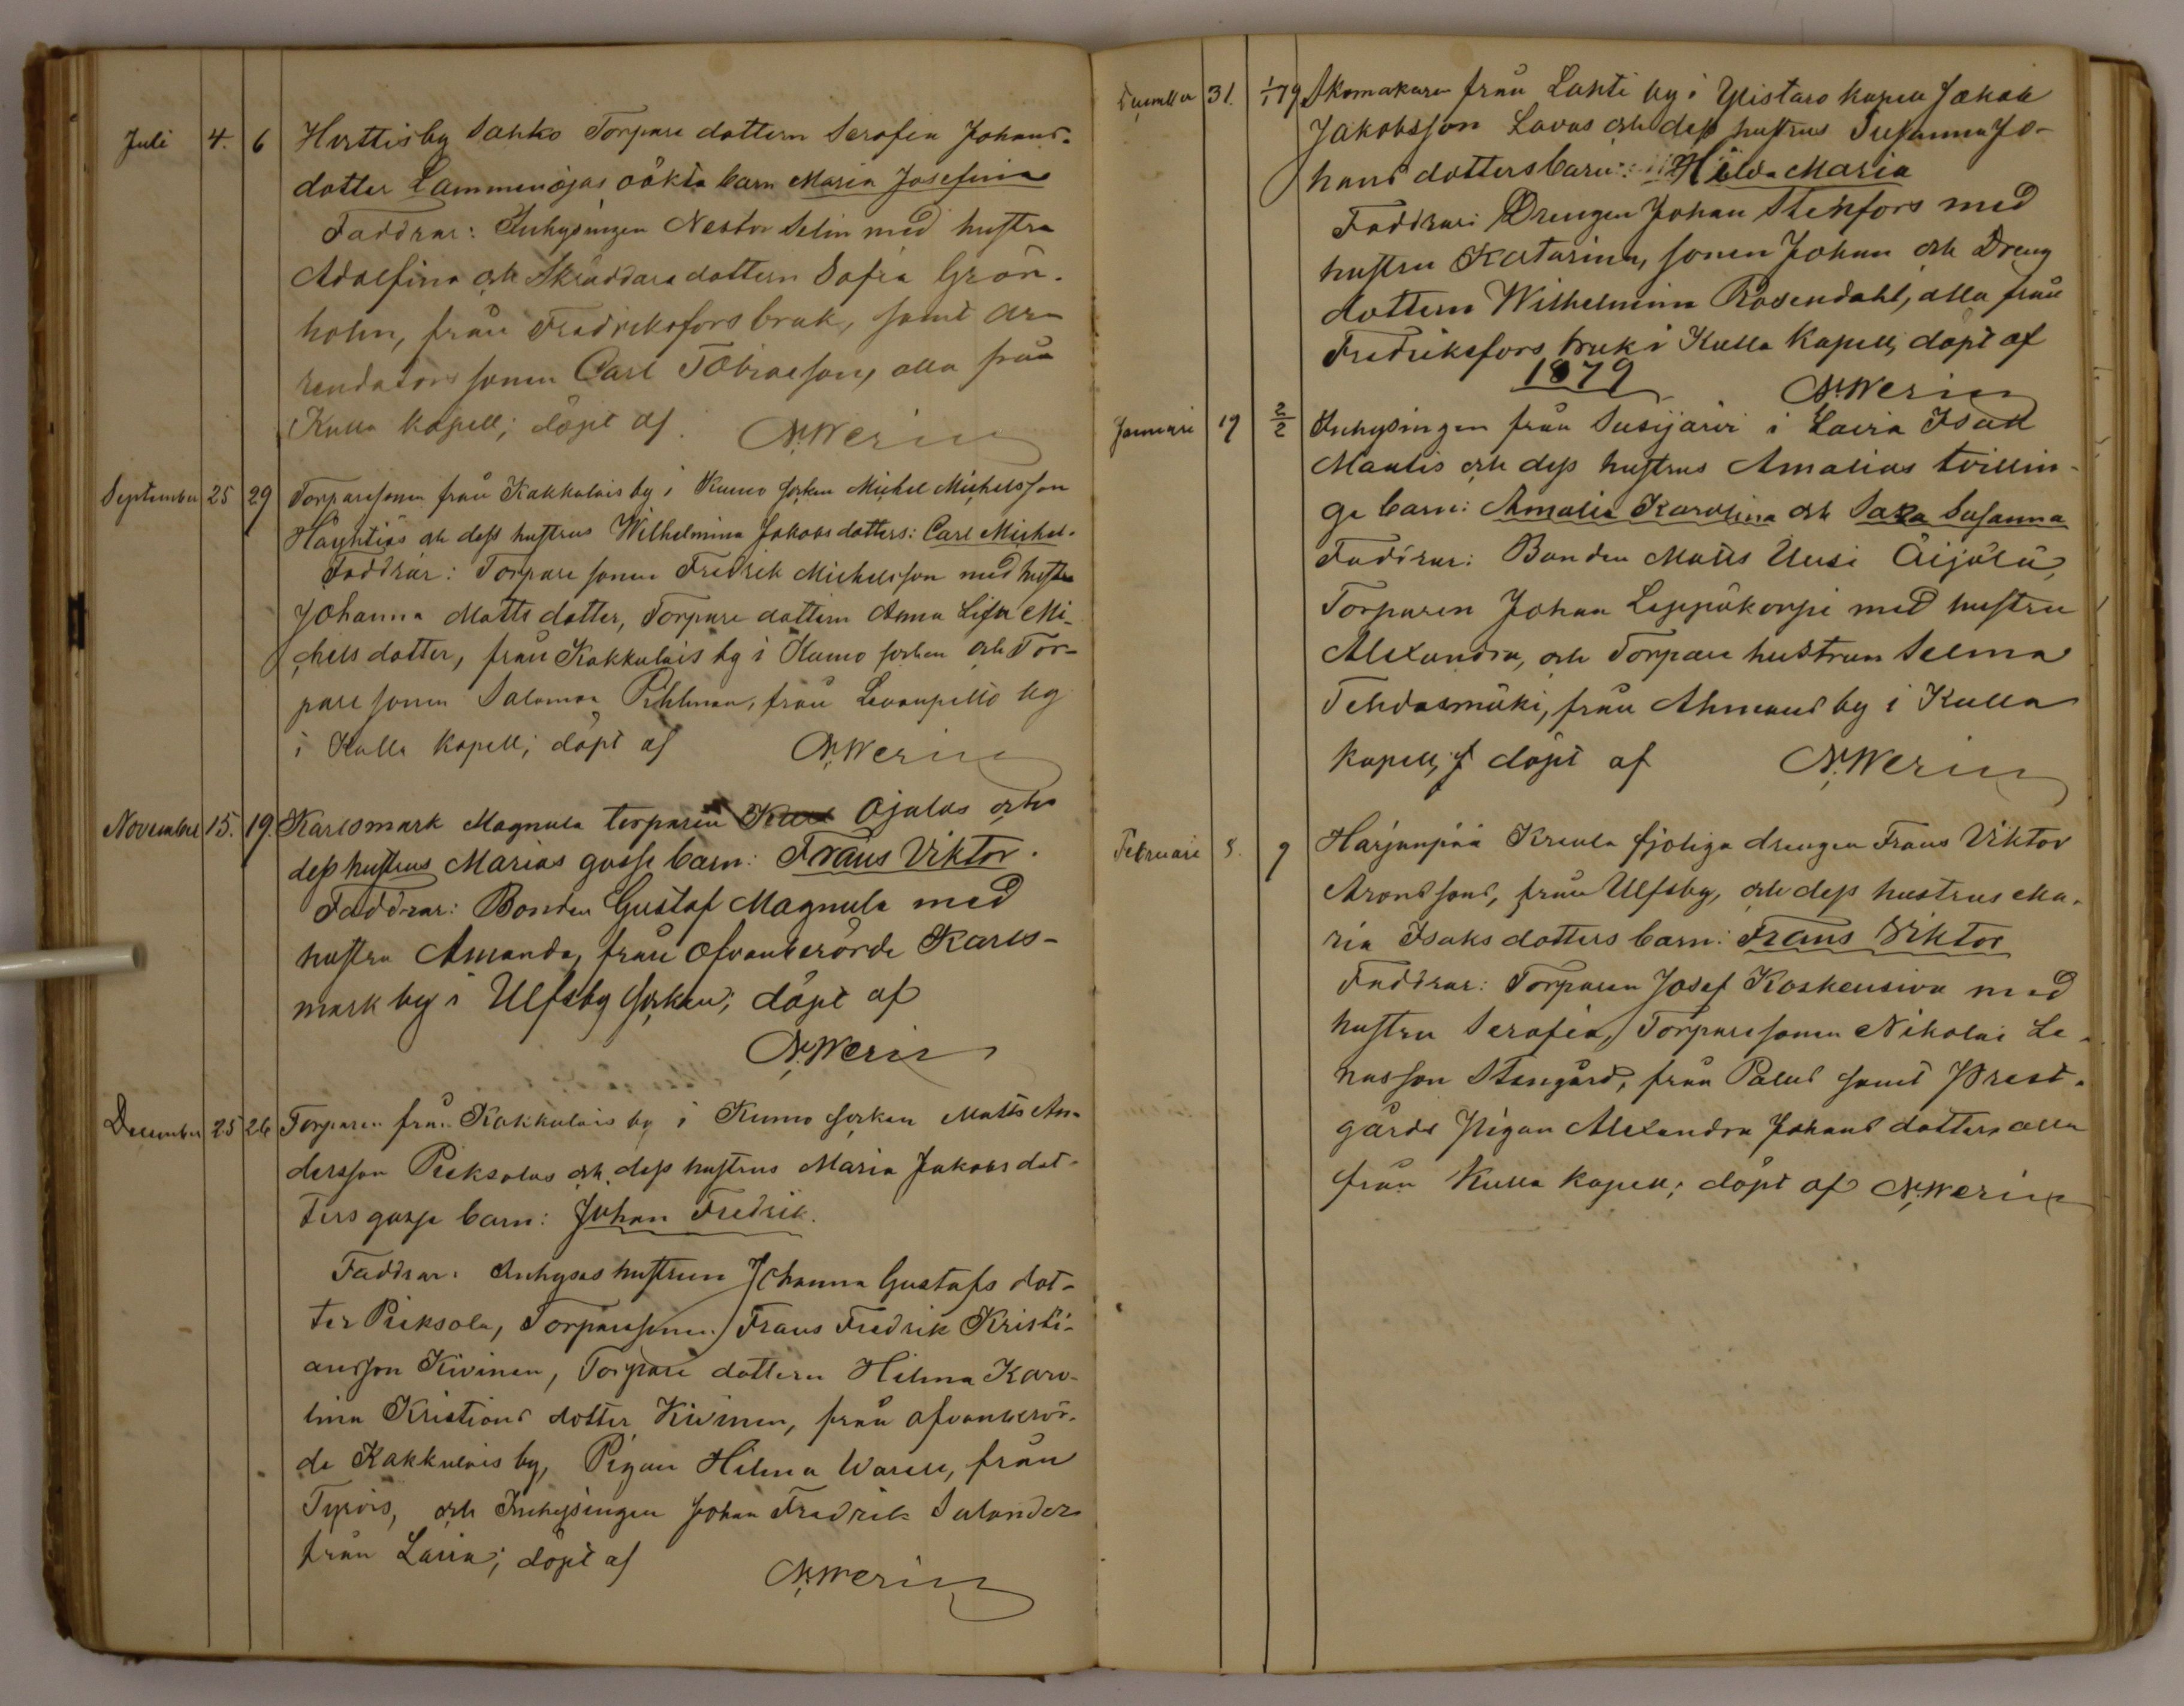 Juli 4. 6 Hvittisby Sahko Torpare dottern Serafia Johans-
dotter Lammenojas oäkta barn Maria Josefina
Faddrar: Inhysingen Nestor Selin med hustru
Adolfina och Skräddare dottern Sofia Grön-
holm, från Fredriksfors bruk, samt Ar-
rendators sonen Carl Tobiasson, alla från
Kulla kapell; döpt af N. Werin
September 25 29 Torparesonen från Kakkulais by i Kumo socken Michel Michelsson
Häyhtiös och dess hustrus Wilhelmina Jakobsdotters: Carl Michel.
Faddrar: Torpare sonen Fredrik Michelsson med hustru
Johanna Matts dotter, Torpare dottern Anna Lisa Mi-
chels dotter, från Kakkulais by i Kumo socken och Tor-
pare sonen Salomon Pihlman, från Levanpelto by
i Kulla kapell; döpt af N. Werin
November 15. 19. Karlsmark Magnula torparen Ojalas och
dess hustrus Marias gosse barn: Frans Viktor.
Faddrar: Bonden Gustaf Magnula med
hustru Amanda, från ofvanberörde Karls-
mark by i Ulfsby socken; döpt af
N. Werin
December 25 26 Torparen från Kakkulais by i Kumo socken Matts An-
dersson Pieksolas och dess hustrus Maria Jakobs dot-
ters gosse barn: Johan Fredrik.
Faddrar: Inhyses hustrun Johanna Gustafs dot-
ter Pieksola, Torparesonen Frans Fredrik Kristi-
ansson Kivinen, Torpare dottern Hilma Karo-
lina Kristians dotter Kivinen, från ofvanberör-
de Kakkulais by, Pigan Hilma Warell, från
Tyrvis, och Inhysingen Johan Fredrik Salander
från Lavia; döpt af N. Werin
December 31. 1/1 79 Skomakaren från Lahti by i Ylistaro kapell Jakob
Jakobsson Lavas och dess hustrus Susanna Jo-
hans dotters barn: Hilda Maria
Faddrar: Drengen Johan Stenfors med
hustru Katarina, sonen Johan och Dreng
dottern Wilhelmina Rosendahl, alla från
Fredriksfors bruk i Kulla Kapell, döpt af
1879 N. Werin
Januari 19 2/2 Inhysingen från Susijärvi i Lavia Isak
Mantis och dess hustrus Amalias tvillin-
ge barn: Amalia Karolina och Sara Susanna
Faddrar: Bonden Matts Uusi Äijälä,
Torparen Johan Leppäkorpi med hustru
Alexandra, och Torpare hustrun Selma
Tehdasmäki, från Ahmaus by i Kulla
kapell; döpt af N. Werin
Februari 8. 9 Harjunpää Kreula fjoliga drengen Frans Viktor
Aronssons, från Ulfsby, och dess hustrus Ma-
ria Isaks dotters barn: Frans Viktor
Faddrar: Torparen Josef Koskensiva med
hustru Serafia, Torparesonen Nikolai Le-
nasson Stengård, från Palus samt Prest-
gårds Pigan Alexandra Johans dotter, alla
från Kulla kapell; döpt af N. Werin